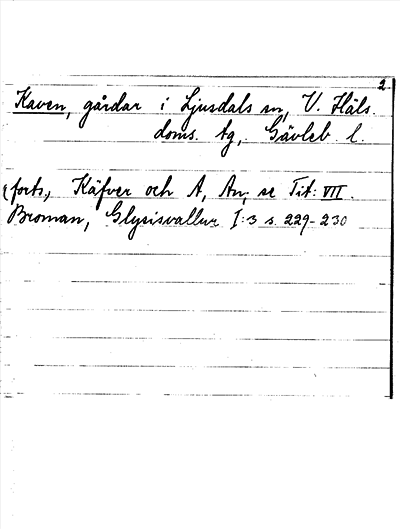 2.
Kaven, gårdar i Ljusdals sn, V. Häls.
doms. tg, Gävleb l.
(forts., Käfver och A, An, se Tit: VII.
Broman, Glysisvallur I:3 s. 229-230